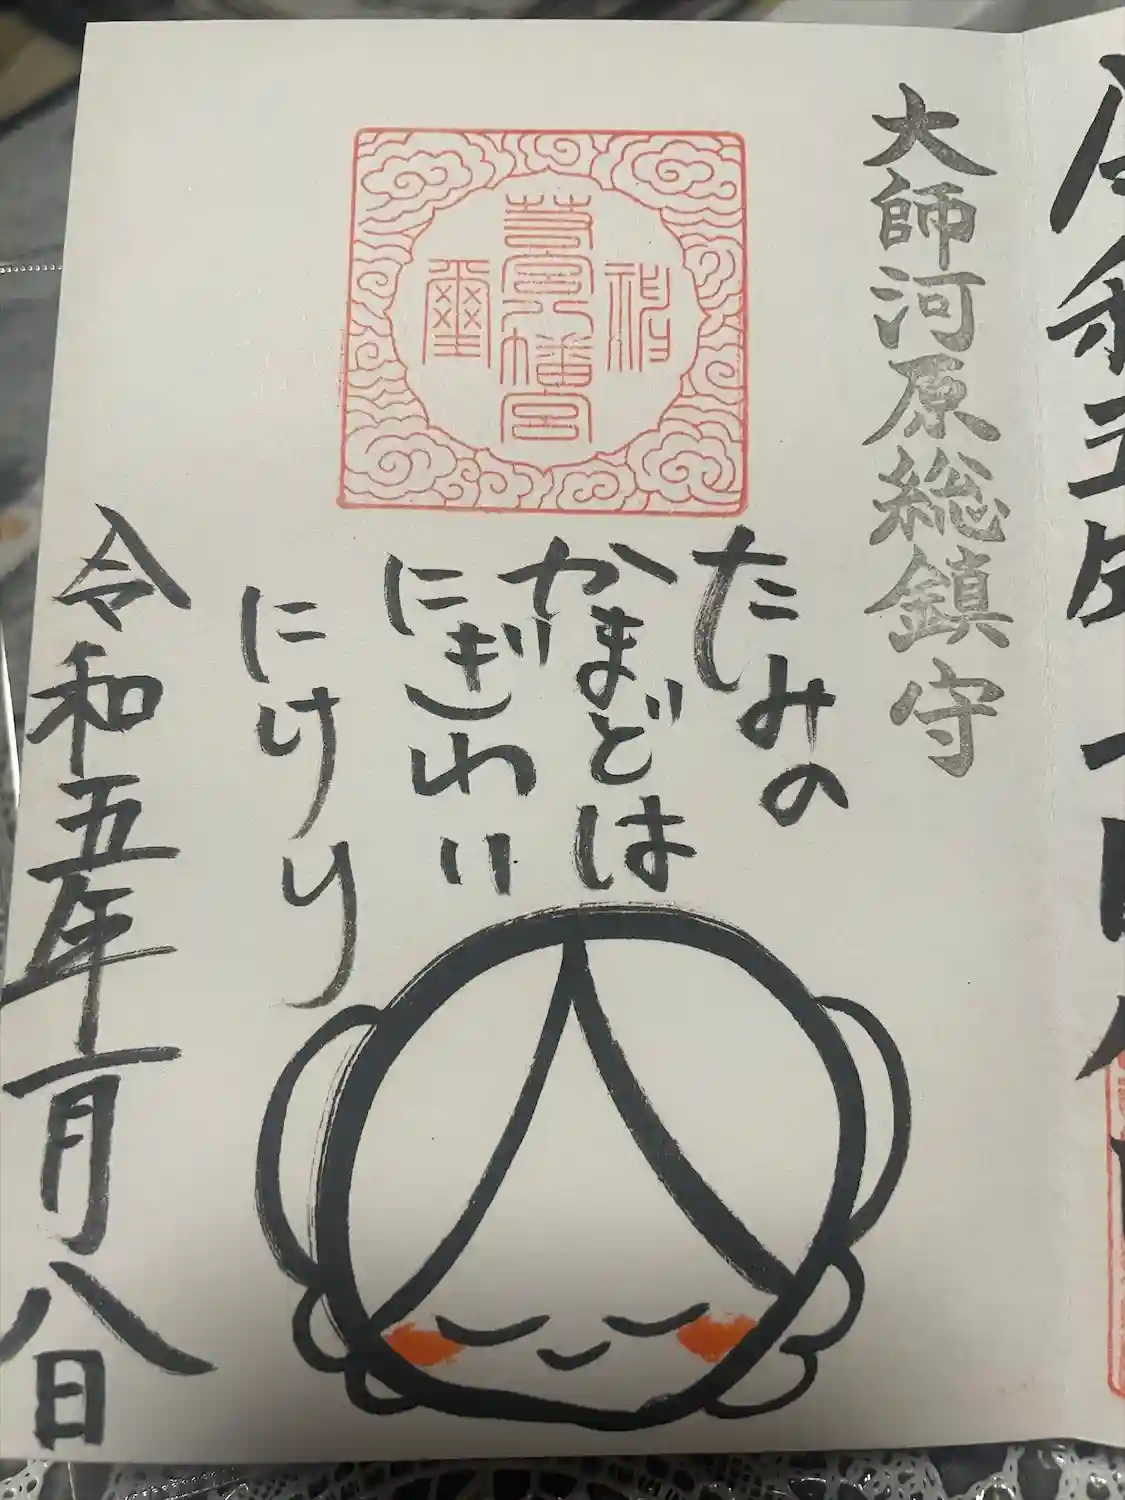 大師河原総鎮守
たみの
かまどは
にぎわい
にけり
令和五年一月八日
若宮八幡宮